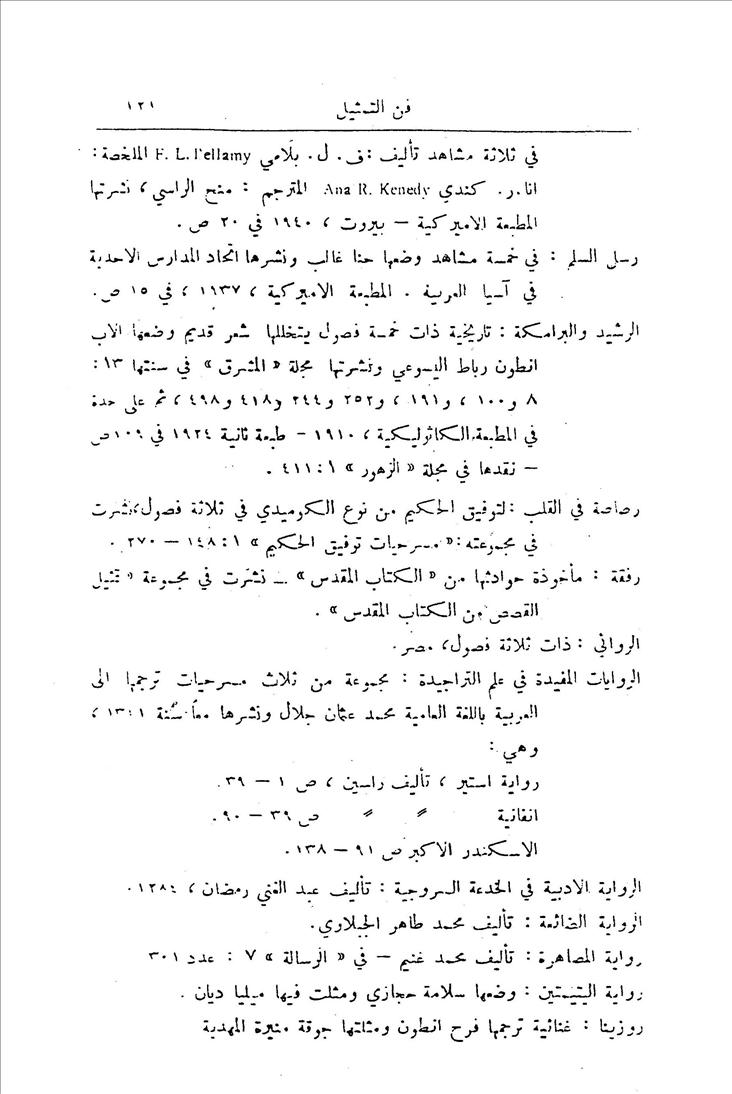 فن التمثيل ١٢١
في ثلاثة مشاهد تأليف : ف. ل. بلامي F. L. Pellamy الملخصة :
انا.ر. كندي Ana R. Kenedy المترجم : منح الراسي ، نشرتها
المطبعة الاميركية – بيروت ، ١٩٤٠ في ٢٠ ص .
رسل السلم : في خمسة مشاهد وضعها حنا غالب ونشرها اتحاد المدارس الاحدية
في آسيا العربية . المطبعة الاميركية ، ١٩٣٧ ، في ١٥ ص.
الرشيد والبرامكة : تاريخية ذات خمسة فصول يتخللها شعر قديم وضعها الاب
انطون رباط اليسوعي ونشرتها مجلة « المشرق » في سنتها ١٣ :
٨ و١٠٠ ، و١٩١ ، و٢٥٢ و٢٤٤ و٤١٨ و٤٩٨ ، ثم على حدة
في المطبعة الكاثوليكية ، ١٩١٠ - طبعة ثانية ١٩٢٤ في ١٠٩ ص
– نقدها في مجلة « الزهور » ٤١١:١ .
رصاصة في القلب : لتوفيق الحكيم من نوع الكوميدي في ثلاثة فصول، نشرت
في مجموعته : « مسرحيات توفيق الحكيم » ١ : ١٤٨ – ٢٧٠ .
رفقة : مأخوذة حوادثها من « الكتاب المقدس » – نشرت في مجموعة « تمثيل
القصص من الكتاب المقدس » .
الروائي : ذات ثلاثة فصول، مصر.
الروايات المفيدة في علم التراجيدة : مجموعة من ثلاث مسرحيات ترجمها الى
العربية باللغة العامية محمد عثمان جلال ونشرها معاً سنة ،
وهي :
رواية استير ، تأليف راسين ، ص ١ – ٣٩.
انفانية » » ص ٣٩ – ٩٠.
الاسكندر الاكبر ص ٩١ – ١٣٨.
الرواية الادبية في الخدعة السروجية : تأليف عبد الغني رمضان ، ١٢٨٤.
الرواية الضائعة : تأليف محمد طاهر الجبلاوي.
رواية المصاهرة : تأليف محمد غنيم – في « الرسالة » ٧ : عدد ٣٠١
رواية اليتيمتين : وضعها سلامة حجازي ومثلت فيها ميليا ديان .
روزينا : غنائية ترجمها فرح انطون ومثلتها جوقة منيرة المهدية